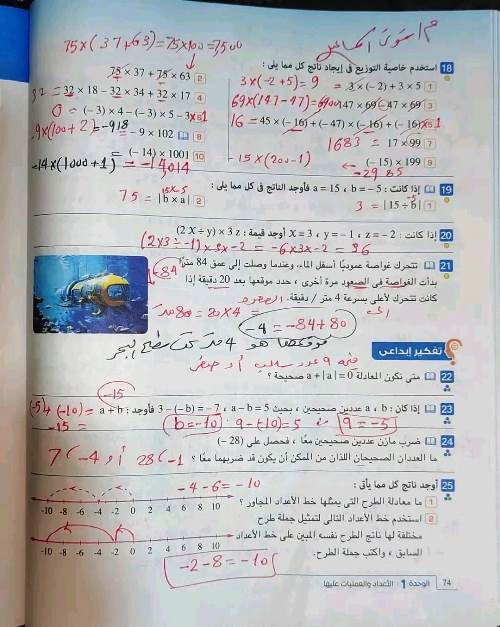 75×(37+63)=75×100=7,500
18 استخدم خاصية التوزيع فى إيجاد ناتج كل مما يلى :
3×(-2+5)= 9 = 3 × (-2) + 3 × 5 1
75 × 37 + 75 × 63 2
69×(147-47)=6900 147 × 69 - 47 × 69 3
32 × 18 - 32 × 34 + 32 × 17 4
16 = 45 × (-16) + (-47) × (-16) + (-16) × 1 5
0 = (-3) × 4 - (-3) × 5 - 3 × 1
1683 = 17 × 99 7
-9×(100+2) = -918 -9 × 102 8
-15×(200-1) (-15) × 199 9
-2985
-14×(1000+1) = -14,014 (-14) × 1001 10
19 إذا كانت : a = 15 ، b = -5 فأوجد الناتج فى كل مما يلى :
3 = |15 ÷ b| 1
75 = |b × a| 2
20 إذا كانت : X = 3 ، y = -1 ، z = -2 أوجد قيمة : (2 X ÷ y) × 3 z
(2×3÷-1)×3×-2 = -6×3×-2 = 36
21 تتحرك غواصة عموديًا أسفل الماء، وعندما وصلت إلى عمق 84 مترًا
بدأت الغواصة فى الصعود مرة أخرى ، حدد موقعها بعد 20 دقيقة إذا
كانت تتحرك لأعلى بسرعة 4 متر / دقيقة.
-84
20×4 = 80
-4 = -84+80
موقعها هو 4 متر تحت سطح البحر
تفكير إبداعى
22 متى تكون المعادلة a + |a| = 0 صحيحة ؟
عدد سالب أو صفر
-15
23 إذا كان : a ، b عددين صحيحين ، بحيث a - b = 5 ، 3 - (-b) = -7 فأوجد : a + b
b=-10 a-(-10)=5 a=-5
(-5)+(-10) = -15
24 ضرب مازن عددين صحيحين معًا ، فحصل على (-28)
ما العددان الصحيحان اللذان من الممكن أن يكون قد ضربهما معًا ؟
25 أوجد ناتج كل مما يأتى :
-4-6=-10
1 ما معادلة الطرح التى يمثلها خط الأعداد المجاور ؟
-10 -8 -6 -4 -2 0 2 4 6 8 10
2 استخدم خط الأعداد التالى لتمثيل جملة طرح
مختلفة لها ناتج الطرح نفسه المبين على خط الأعداد
-10 -8 -6 -4 -2 0 2 4 6 8 10
السابق ، واكتب جملة الطرح.
-2-8=-10
74 الوحدة 1 : الأعداد والعمليات عليها